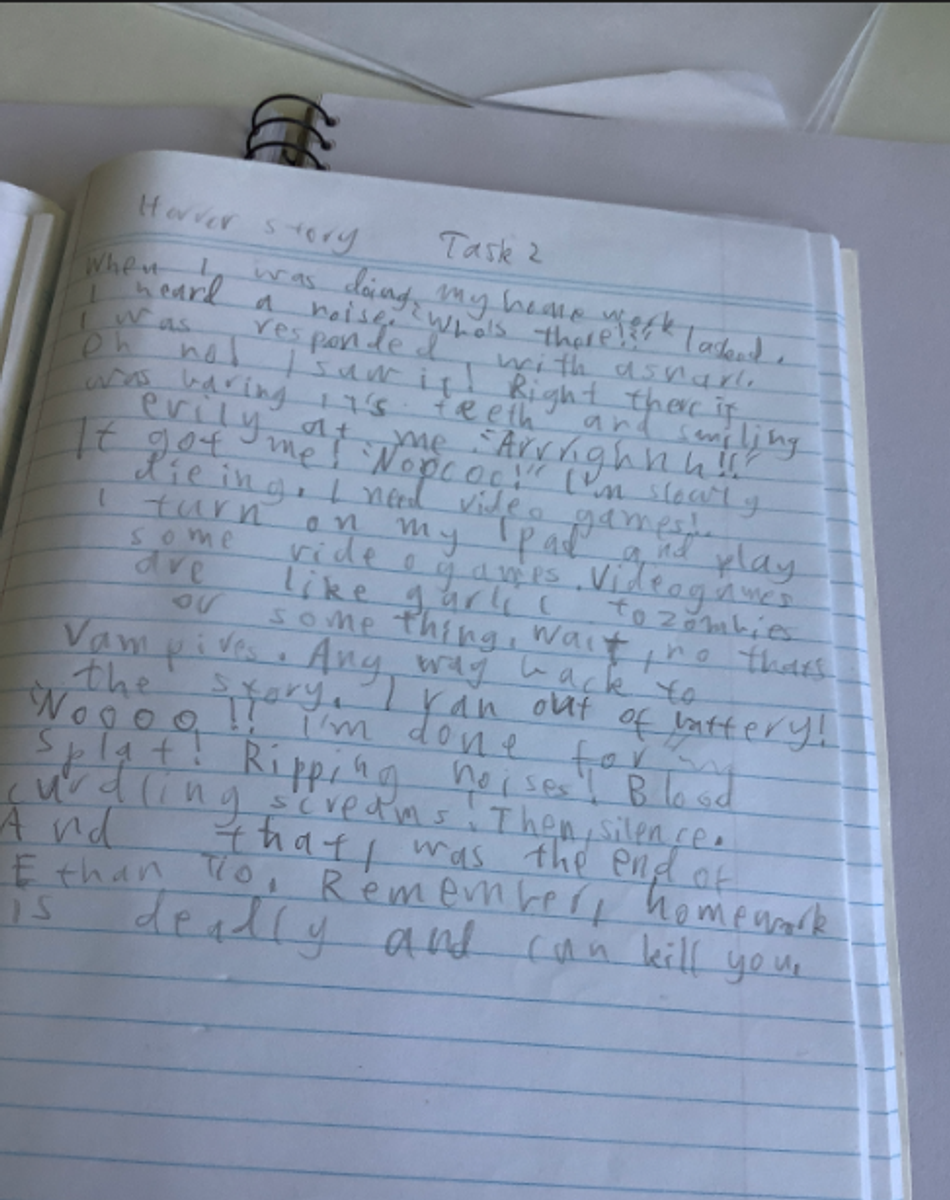 Horror story Task 2
When I was doing my home work
I heard a noise. "Who's there!?!" I asked.
I was responded with a snarl.
Oh no! I saw it! Right there it
was baring it's teeth and smiling
evily at me "Arrrighhh!!"
It got me! "Nopooo!" I'm slowly
dieing. I need video games!
I turn on my Ipad and play
some video games. Videogames
are like garlic to zombies
or something. Wait, no thats
Vampires. Any way back to
the story. I ran out of battery!
"Noooo!! I'm done for
Splat! Ripping noises! Blood
curdling screams! Then, silence.
And that, was the end of
Ethan Tio. Remember, homework
is deadly and can kill you.